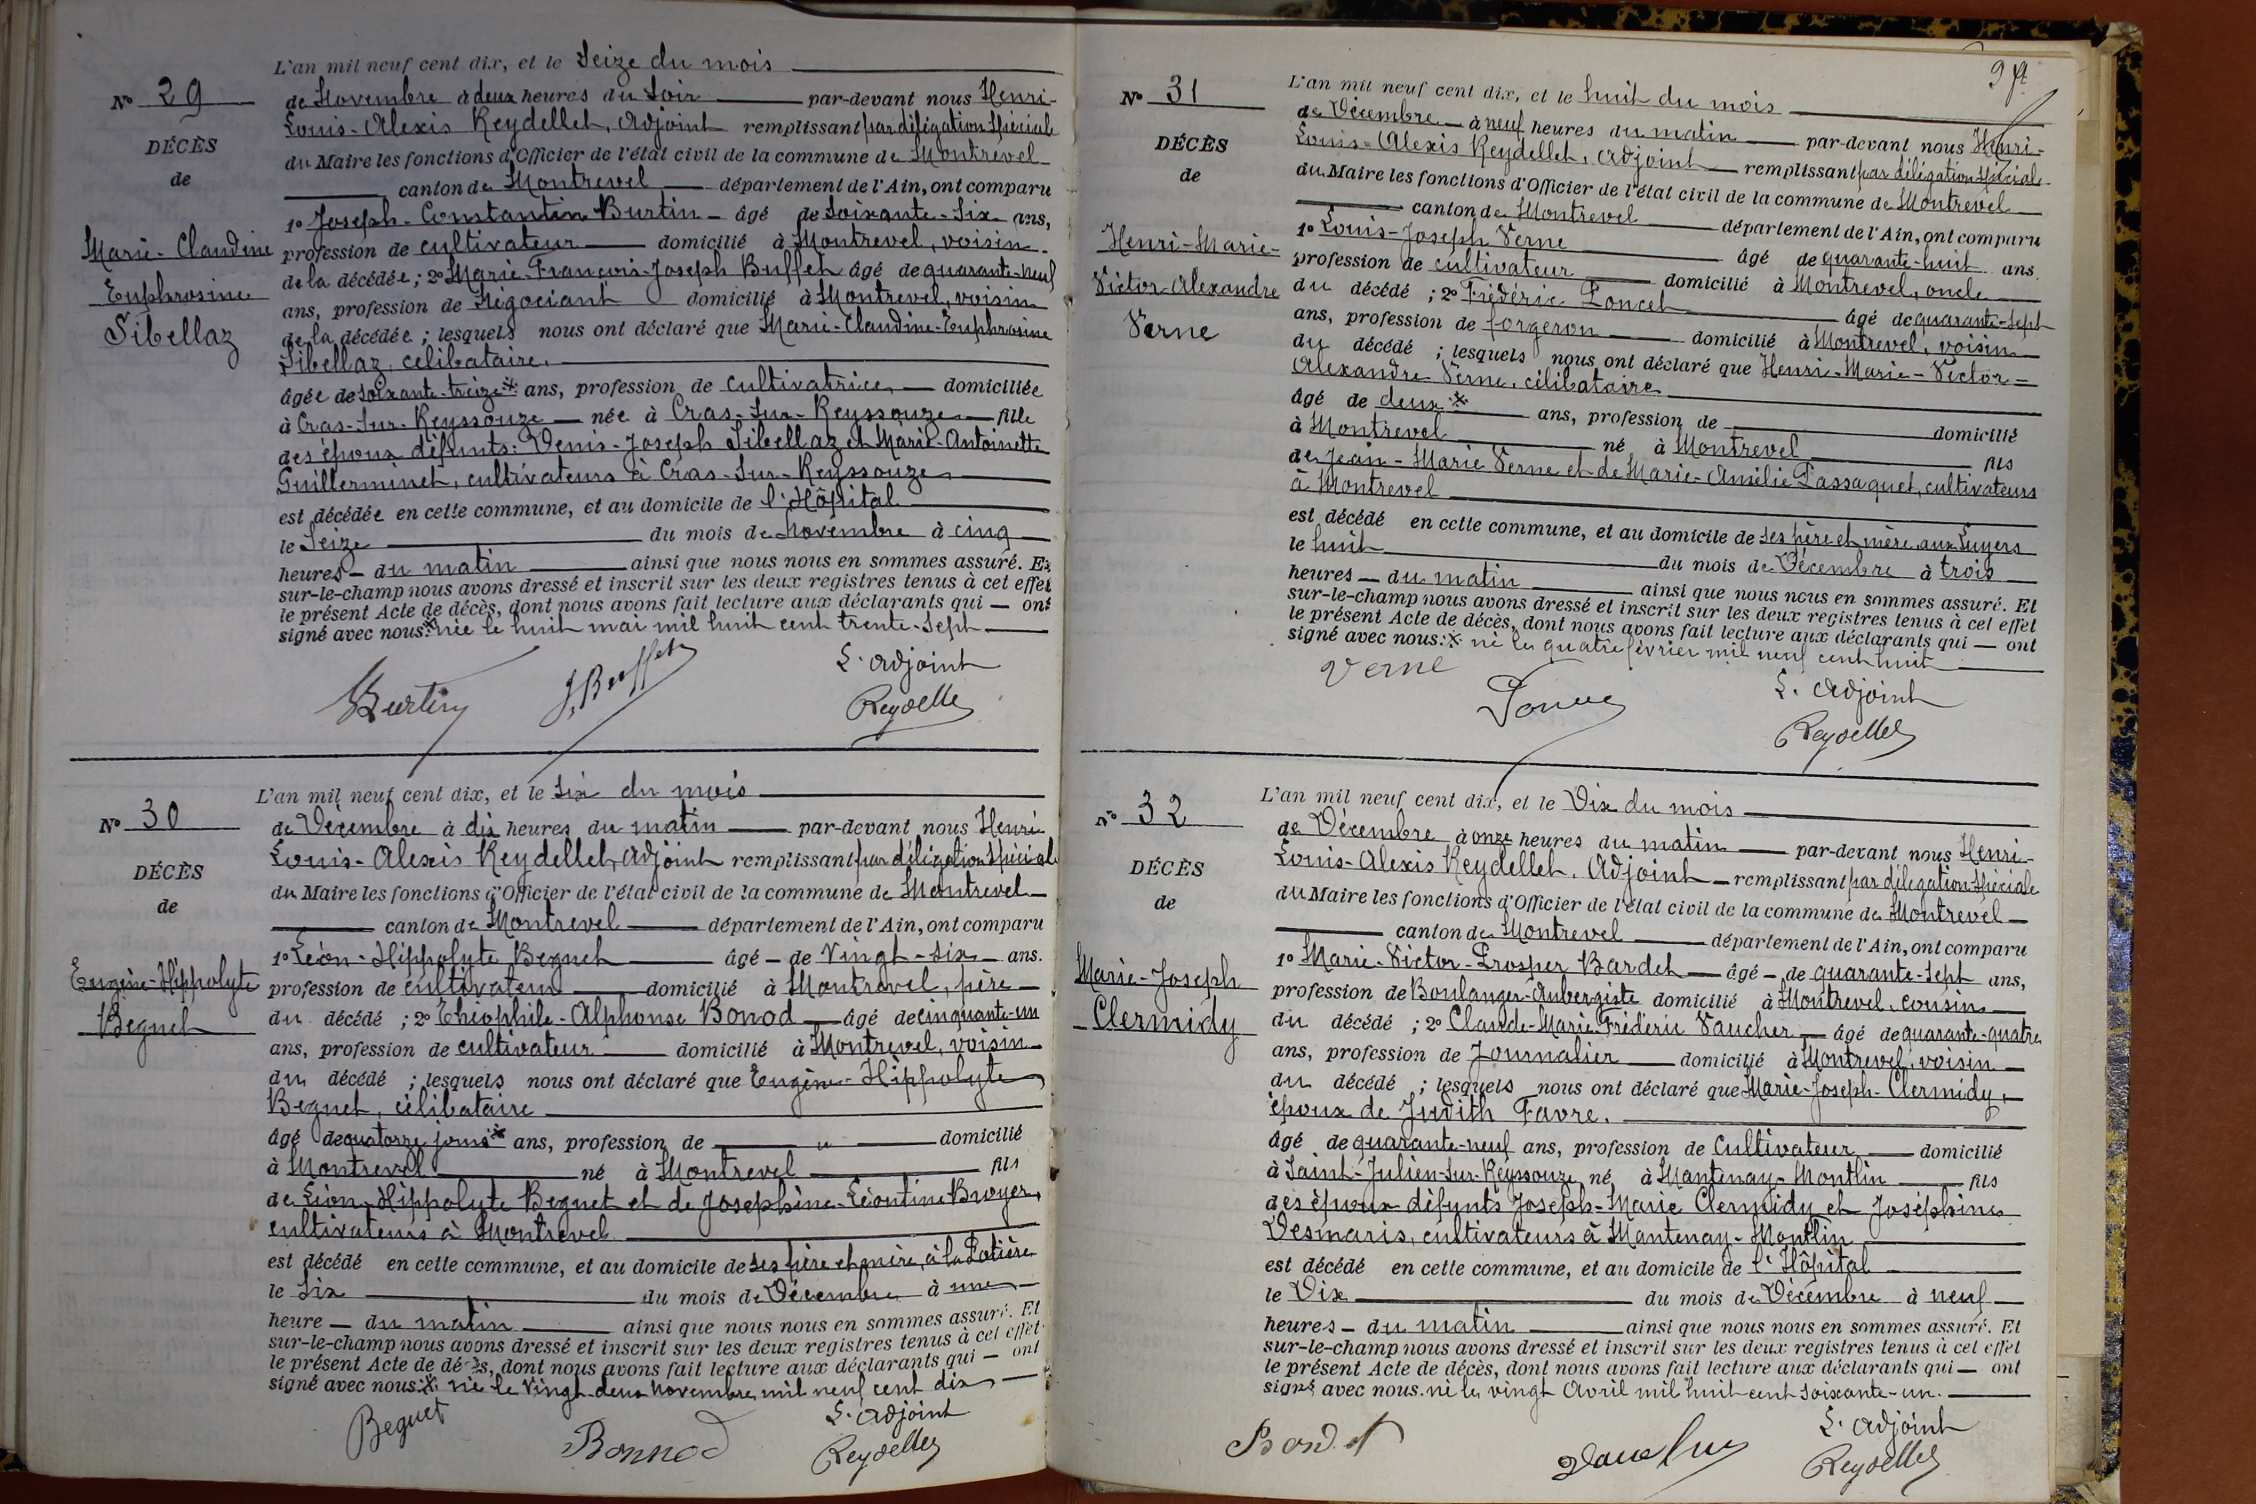 L'an mil neuf cent dix, et le Seize du mois
No 29
de Novembre à deux heures du Soir par-devant nous Henri-
Louis-Alexis Reydellet, Adjoint remplissant par délégation Spéciale
DÉCÈS
du Maire les fonctions d'Officier de l'état civil de la commune de Montrevel
de
canton de Montrevel département de l'Ain, ont comparu
1o Joseph-Constantin Burtin - âgé de Soixante-Six ans,
Marie-Claudine
Euphrosine
Sibellaz
profession de cultivateur domicilié à Montrevel, voisin
de la décédée ; 2o Marie-François-Joseph Buffet âgé de quarante-neuf
ans, profession de Négociant domicilié à Montrevel, voisin
de la décédée ; lesquels nous ont déclaré que Marie-Claudine-Euphrosine
Sibellaz, célibataire.
âgée de Soixante-treize* ans, profession de cultivatrice domiciliée
à Cras-Sur-Reyssouze née à Cras-Sur-Reyssouze fille
des époux défunts: Denis-Joseph Sibellaz et Marie-Antoinette
Guillerminet, cultivateurs à Cras-Sur-Reyssouze
est décédée en cette commune, et au domicile de l'Hôpital
le Seize du mois de Novembre à cinq
heures du matin ainsi que nous nous en sommes assuré. Et
sur-le-champ nous avons dressé et inscrit sur les deux registres tenus à cet effet
le présent Acte de décès, dont nous avons fait lecture aux déclarants qui — ont
signé avec nous.* née le huit mai mil huit cent trente-Sept
L'Adjoint
Burtin J. Buffet Reydellet
L'an mil neuf cent dix, et le Six du mois
No 30
de Décembre à dix heures du matin par-devant nous Henri
Louis-Alexis Reydellet, Adjoint remplissant par délégation Spéciale
DÉCÈS
du Maire les fonctions d'Officier de l'état civil de la commune de Montrevel
de
canton de Montrevel département de l'Ain, ont comparu
1o Léon-Hippolyte Beguet âgé — de Vingt-Six ans.
Eugène-Hippolyte
Beguet
profession de cultivateur domicilié à Montrevel, père
du décédé ; 2o Théophile-Alphonse Bonod âgé de cinquante-un
ans, profession de cultivateur domicilié à Montrevel, voisin
du décédé ; lesquels nous ont déclaré que Eugène-Hippolyte
Beguet, célibataire
âgé de quatorze jours* ans, profession de " domicilié
à Montrevel né à Montrevel fils
de Léon-Hippolyte Beguet et de Joséphine-Léontine Broyer,
cultivateurs à Montrevel
est décédé en cette commune, et au domicile de Ses père et mère, à la Potière
le Six du mois de Décembre à une
heure — du matin ainsi que nous nous en sommes assuré. Et
sur-le-champ nous avons dressé et inscrit sur les deux registres tenus à cet effet
le présent Acte de décès, dont nous avons fait lecture aux déclarants qui — ont
signé avec nous.* né le Vingt-deux Novembre mil neuf cent dix
L'Adjoint
Beguet Bonnod Reydellet
No 31
L'an mil neuf cent dix, et le huit du mois
de Décembre à neuf heures du matin par-devant nous Henri-
DÉCÈS
Louis-Alexis Reydellet, Adjoint remplissant par délégation Spéciale
de
du Maire les fonctions d'Officier de l'état civil de la commune de Montrevel
canton de Montrevel département de l'Ain, ont comparu
Henri-Marie-
Victor-Alexandre
Verne
1o Louis-Joseph Verne âgé de quarante-huit ans.
profession de cultivateur domicilié à Montrevel, oncle
du décédé ; 2o Frédéric Poncet âgé de quarante-Sept
ans, profession de forgeron domicilié à Montrevel, voisin
du décédé ; lesquels nous ont déclaré que Henri-Marie-Victor-
Alexandre Verne, célibataire
âgé de deux* ans, profession de domicilié
à Montrevel né à Montrevel fils
de Jean-Marie Verne et de Marie-Amélie Passaquet, cultivateurs
à Montrevel
est décédé en cette commune, et au domicile de Ses père et mère, aux Luyers
le huit du mois de Décembre à trois
heures — du matin ainsi que nous nous en sommes assuré. Et
sur-le-champ nous avons dressé et inscrit sur les deux registres tenus à cet effet
le présent Acte de décès, dont nous avons fait lecture aux déclarants qui — ont
signé avec nous.* né le quatre février mil neuf cent huit
L'Adjoint
Verne Poncet Reydellet
No 32
L'an mil neuf cent dix, et le Dix du mois
de Décembre à onze heures du matin par-devant nous Henri-
DÉCÈS
Louis-Alexis Reydellet, Adjoint remplissant par délégation Spéciale
de
du Maire les fonctions d'Officier de l'état civil de la commune de Montrevel
canton de Montrevel département de l'Ain, ont comparu
Marie-Joseph
Clermidy
1o Marie-Victor-Prosper Bardet âgé — de quarante-Sept ans,
profession de Boulanger-Aubergiste domicilié à Montrevel, cousin
du décédé ; 2o Claude-Marie-Frédéric Vaucher âgé de quarante-quatre
ans, profession de Journalier domicilié à Montrevel, voisin
du décédé ; lesquels nous ont déclaré que Marie-Joseph-Clermidy,
époux de Judith Favre.
âgé de quarante-neuf ans, profession de Cultivateur domicilié
à Saint-Julien-Sur-Reyssouze né à Mantenay-Montlin fils
des époux défunts Joseph-Marie Clermidy et Joséphine
Desmaris, cultivateurs à Mantenay-Montlin
est décédé en cette commune, et au domicile de l'Hôpital
le Dix du mois de Décembre à neuf
heures — du matin ainsi que nous nous en sommes assuré. Et
sur-le-champ nous avons dressé et inscrit sur les deux registres tenus à cet effet
le présent Acte de décès, dont nous avons fait lecture aux déclarants qui — ont
signé avec nous. né le vingt Avril mil huit cent Soixante-un.
L'Adjoint
Bardet Vaucher Reydellet